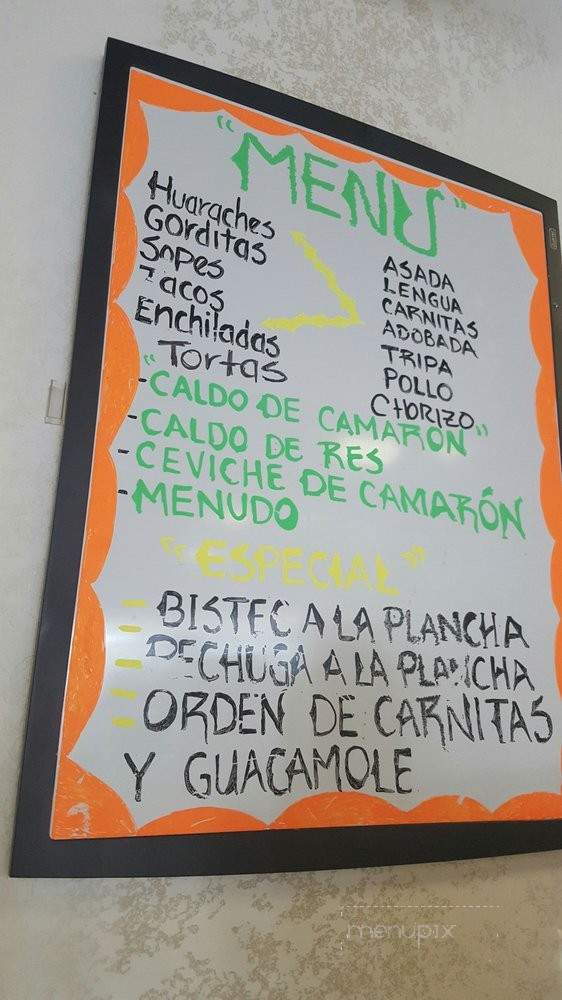 "MENU"
Huaraches
Gorditas
Sopes
Tacos
Enchiladas
Tortas
ASADA
LENGUA
CARNITAS
ADOBADA
TRIPA
POLLO
CHORIZO
"-CALDO DE CAMARÓN"
-CALDO DE RES
-CEVICHE DE CAMARÓN
-MENUDO
"ESPECIAL"
- BISTEC A LA PLANCHA
- PECHUGA A LA PLANCHA
- ORDEN DE CARNITAS
Y GUACAMOLE
menupix